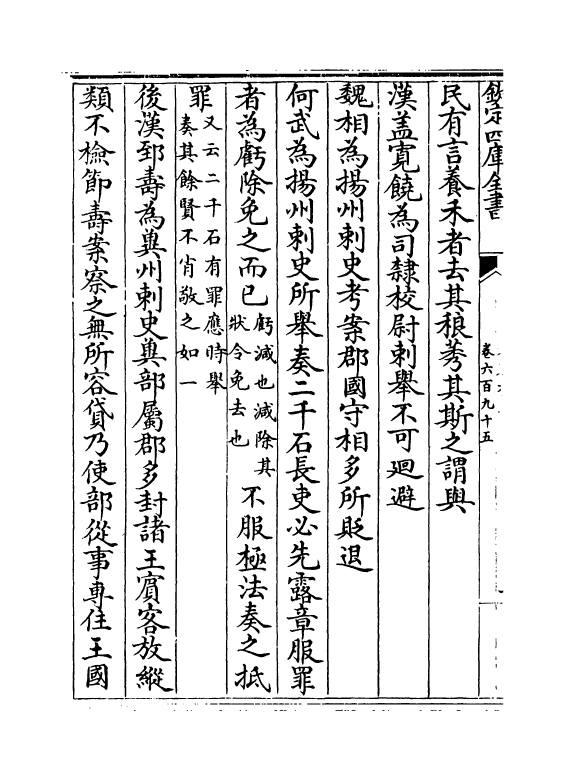 欽定四庫全書
卷六百九十五
民有言養禾者去其稂莠其斯之謂與
漢盖寛饒為司隸校尉刺舉不可廻避
魏相為揚州刺史考案郡國守相多所貶退
何武為揚州刺史所舉奏二千石長吏必先露章服罪
者為虧除免之而已虧減也減除其狀令免去也不服極法奏之抵
罪又云二千石有罪應時舉奏其餘賢不肖敬之如一
後漢郅壽為兾州刺史兾部屬郡多封諸王賓客放縱
類不檢節壽案察之無所容貸乃使部從事專住王國